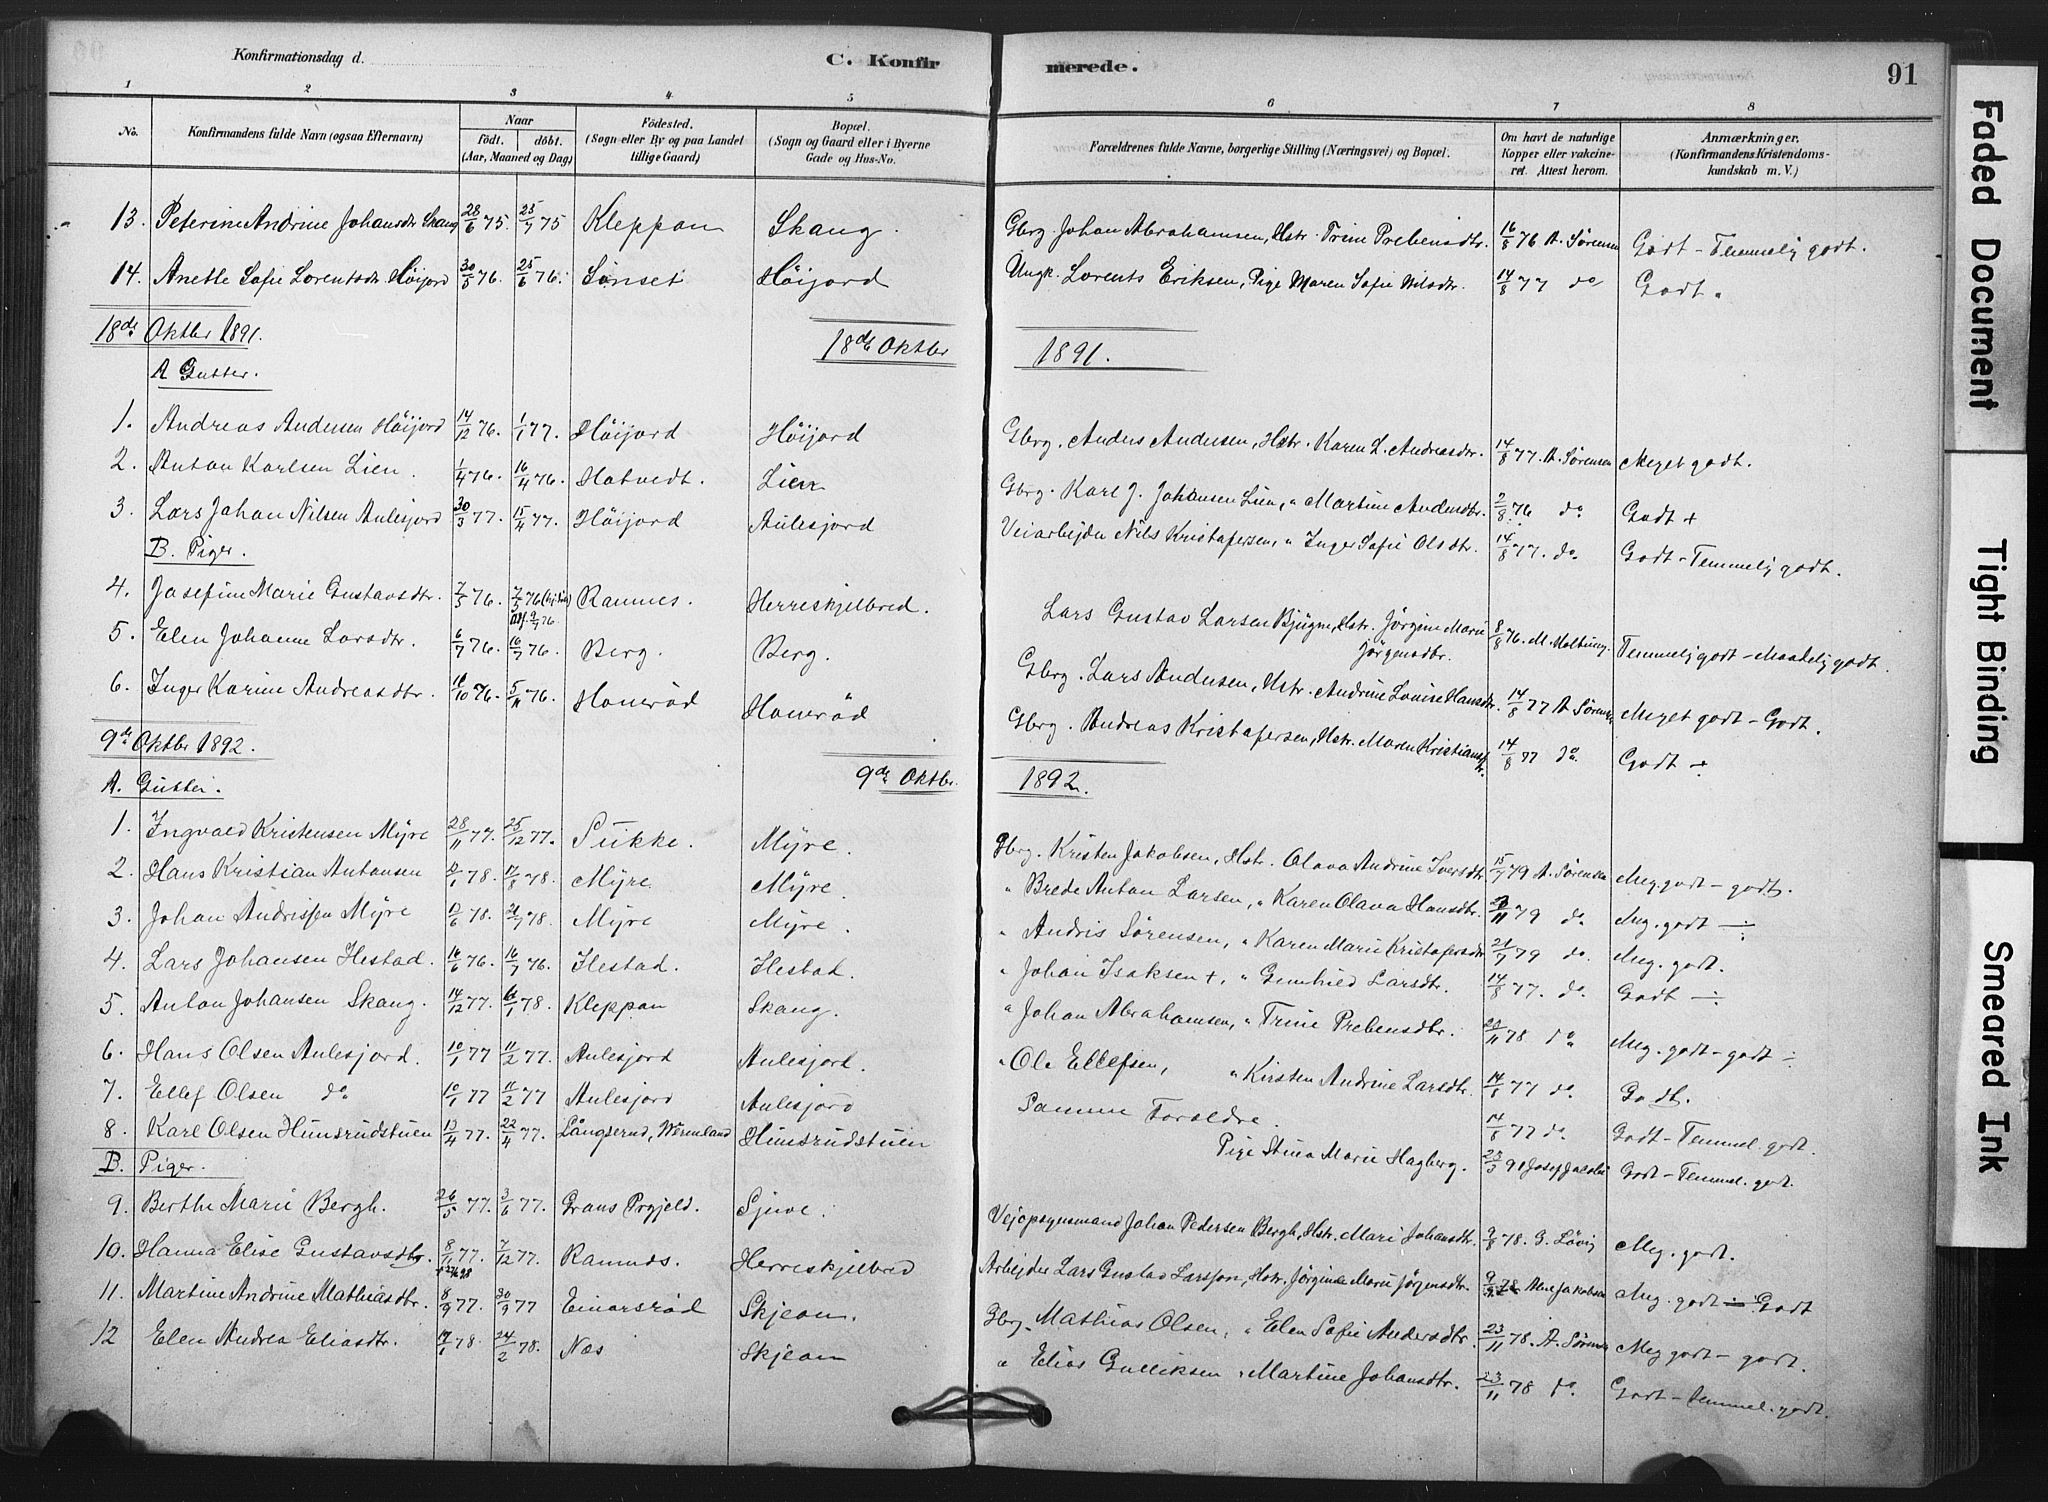 Konfirmationsdag d.
C. Konfir
merede.
91
1 2 3 4 5 6 7 8
No.
Konfirmandens fulde Navn (ogsaa Efternavn)
Naar
født. døbt.
(Aar, Maaned og Dag)
Fødested.
(Sogn eller By og paa Landet
tillige Gaard)
Bopæl.
(Sogn og Gaard eller i Byerne
Gade og Hus-No.
Forældrenes fulde Navne, borgerlige Stilling (Næringsvei) og Bopæl.
Om havt de naturlige
Kopper eller vakcine-
ret. Attest herom.
Anmærkninger,
(Konfirmandens Kristendoms-
kundskab m. V.)
13. Peterine Andrine Johansdtr Skaug 28/6 75 25/7 75 Kleppan Skaug. Gbrg. Johan Abrahamsen, Hstr. Trine Prebensdtr. 16/8 76 A. Sørensen Godt - Temmelig godt.
14. Anette Sofie Lorentsdtr Höijord 30/5 76. 25/6 76. Sönset Höijord Ungk. Lorents Eriksen, Pige Maren Sofie Nilsdtr. 14/8 77 do Godt
18de Oktbr 1891.
18de Oktbr 1891.
A Gutter.
1. Andreas Andersen Höijord 14/12 76. 1/1 77. Höijord Höijord Gbrg. Anders Andersen, Hstr. Karen L. Andreasdtr. 14/8 77. A. Sørensen Meget godt.
2. Anton Karlsen Lien. 1/4 76 16/4 76. Hotvedt. Lien Gbrg. Karl J. Johansen Lien, " Martine Andersdtr. 2/8 76 do Godt +
3. Lars Johan Nilsen Aulesjord 30/3 77. 15/4 77. Höijord Aulesjord Veiarbejder Nils Kristofersen, " Inger Sofie Olsdtr. 14/8 77. do. Godt - Temmelig godt.
B. Piger.
4. Josefine Marie Gustavsdtr. 7/5 76. 7/5 76 Ramnes. Herreskjelbred. Lars Gustav Larsen Bjügne, Hstr. Jörgine Marie Jörgensdtr. 8/8 76. Temmelig godt - Maadelig godt.
5. Elen Johanne Larsdtr. 6/7 76. 16/7 76. Berg. Berg. Gbrg. Lars Andersen, Hstr. Andrine Lovise Hansdtr. 14/8 77 A. Sørensen Meget godt - Godt.
6. Inger Karine Andreasdtr. 16/10 76. 5/11 76. Honeröd Honeröd Gbrg. Andreas Kristofersen, Hstr. Maren Kristiansdtr. 14/8 77 do. Godt ÷
9de Oktbr 1892.
9de Oktbr. 1892.
A. Gutter.
1. Ingvald Kristensen Myre 28/11 77. 25/12 77. Sukke. Myre. Gbrg. Kristen Jakobsen, Hstr. Olava Andrine Iversdtr 15/7 79 A. Sørensen Meg. godt - godt.
2. Hans Kristian Antonsen 78. 78. Myre. Myre. " Brede Anton Larsen, " Karen Olava Hansdtr. 79 do Meg. godt ÷
3. Johan Andrissen Myre 78. 21/7 78. Myre Myre. " Andris Sørensen, " Karen Marie Kristofersdtr 21/7 79 do. Meg. godt.
4. Lars Johansen Hestad. 14/6 76. 16/7 76. Hestad. Hestad. " Johan Isaksen +, " Gunhild Larsdtr. 14/8 77. do Godt ÷
5. Anton Johansen Skaug. 14/12 77. 78. Kleppan Skaug. " Johan Abrahamsen, " Trine Prebensdtr. 78 do Meg. godt - godt ÷
6. Hans Olsen Aulesjord. 10/1 77 11/2 77. Aulesjord Aulesjord. " Ole Ellefsen, " Kirsten Andrine Larsdtr. 14/8 77 do. Godt.
7. Ellef Olsen do 10/1 77 11/2 77 Aulesjord Aulesjord Samme Foreldre. 14/8 77 do. Godt - Temmel. godt.
8. Karl Olsen Hunsrudstuen 13/4 77. 22/4 77. Långserud, Wermland Hunsrudstuen Pige Stina Marie Hagberg. 23/3 91 Godt - Temmel. godt.
B. Piger.
9. Berthe Marie Bergh. 26/5 77. 3/6 77. Sjuve. Vejopsynsmand Johan Pedersen Bergh, Hstr. Mari Johansdtr. 9/8 78. G. Løvig Meg. godt.
10. Hanna Elise Gustavsdtr. 77. 7/12 77. Ramnes. Herreskjelbred Arbejder Lars Gustav Larsson, Hstr. Jörgine Marie Jörgensdtr. Meg. godt Godt
11. Martine Andrine Mathiasdtr. 8/9 77. 30/9 77 Einarsröd Skjeau. Gbrg. Mathias Olsen, " Elen Sofie Andersdtr. 23/11 78. A. Sørensen Meg godt - godt.
12 Elen Andrea Eliasdtr. 78. 24/2 78. Næs Skjeau " Elias Gulliksen " Martine Johansdtr. 23/11 78 do. Godt - Temmel. godt.
Faded Document
Tight Binding
Smeared Ink